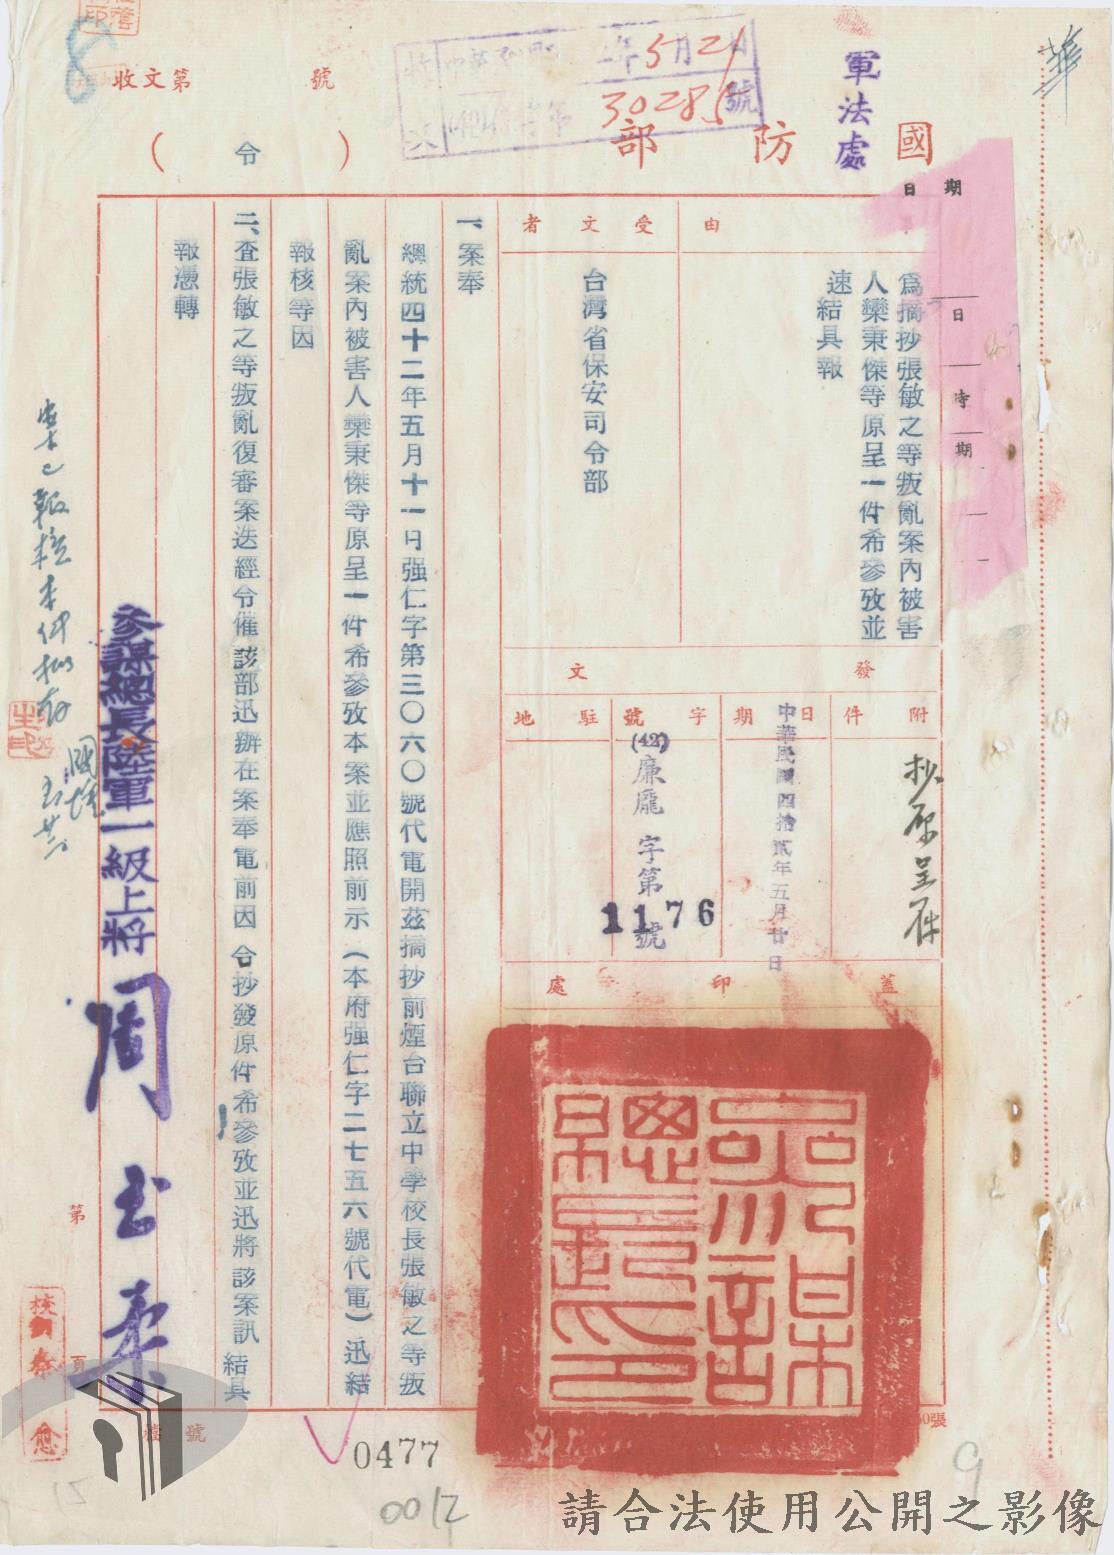 收文第　　　號
年5月21日
30285號
軍法處
國防部
（令）
日期
日
時
期
由
為摘抄張敏之等叛亂案內被害
人欒秉傑等原呈一件希參攷並
速結具報
受文者
台灣省保安司令部
發文
附件
抄原呈一件
日期
中華民國四拾貳年五月廿日
字號
(42)廉龐字第1176號
駐地
蓋印處
一、案奉
總統四十二年五月十一日强仁字第三〇六六〇號代電開茲摘抄前煙台聯立中學校長張敏之等叛
亂案內被害人欒秉傑等原呈一件希參攷本案並應照前示（本府强仁字二七五六號代電）迅結
報核等因
二、查張敏之等叛亂復審案迭經令催該部迅辦在案奉電前因合抄發原件希參攷並迅將該案訊結具
報憑轉
參謀總長陸軍一級上將周至柔
第
頁
檔號
0477
0012
9
15
8
請合法使用公開之影像